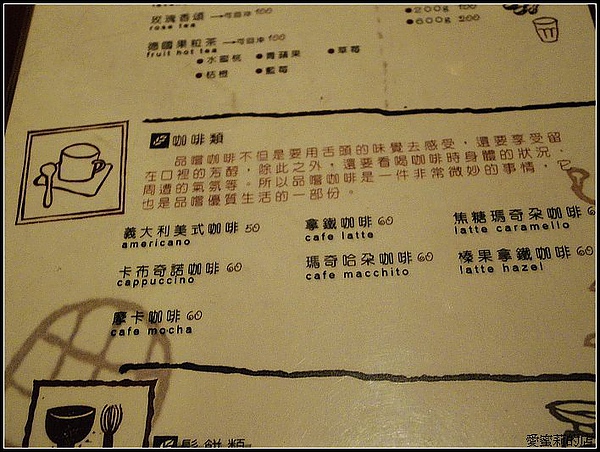 玫瑰香頌 →可回沖 100
rose tea
●200g 100
●600g 200
德國果粒茶 →可回沖 100
fruit hot tea
●水蜜桃 ●青蘋果 ●草莓
●桔橙 ●藍莓
咖啡類
品嚐咖啡不但是要用舌頭的味覺去感受，還要享受留
在口裡的芳醇，除此之外，還要看喝咖啡時身體的狀況、
周遭的氣氛等。所以品嚐咖啡是一件非常微妙的事情，它
也是品嚐優質生活的一部份。
義大利美式咖啡 50
americano
拿鐵咖啡 60
cafe latte
焦糖瑪奇朵咖啡
latte caramello
卡布奇諾咖啡 60
cappuccino
瑪奇哈朵咖啡 60
cafe macchito
榛果拿鐵咖啡 60
latte hazel
摩卡咖啡 60
cafe mocha
鬆餅類
愛蜜莉的店